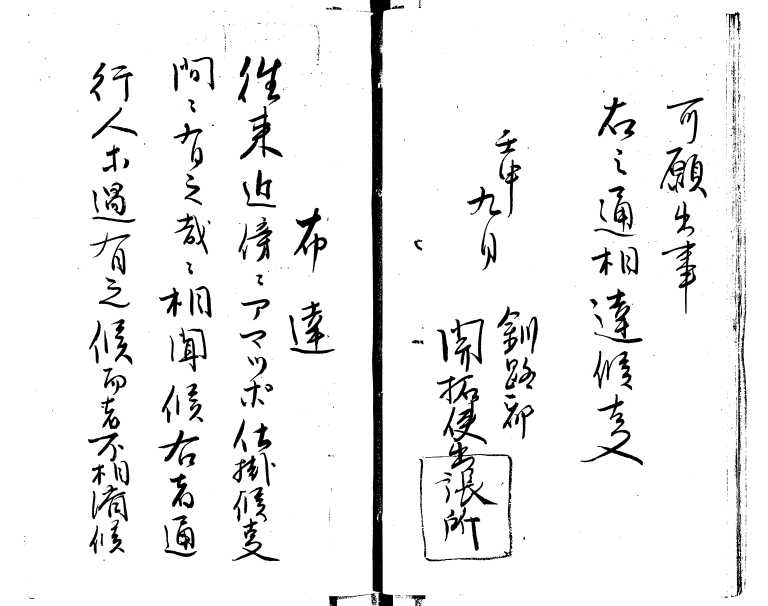 可願出事
右之通相達候事
壬申九月
釧路郡
開拓使出張所
布達
往来近傍ニアマツポ仕掛候事
間ニ有之哉ニ相聞候右者通
行人ホ過有之候而者不相済候